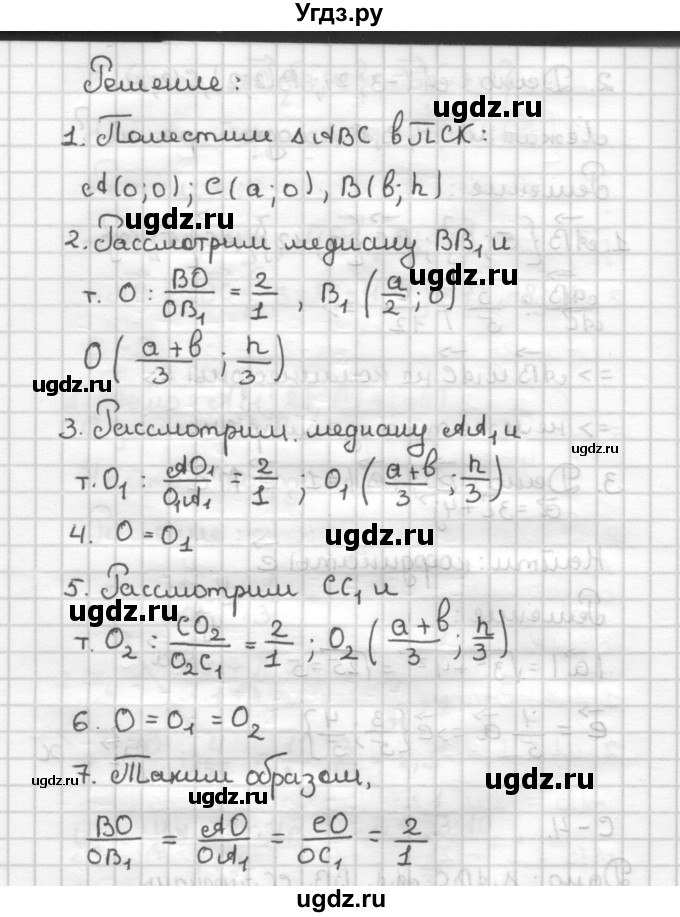 Угдз.ру
Решение:
ugdz.ru
1. Поместим ΔABC в ПСК:
A(0;0); C(a;0), B(b;h)
ugdz.ru
2. Рассмотрим медиану BB₁ и
ugdz.ru
т. O : BO/OB₁ = 2/1 , B₁(a/2 ; 0)
O((a+b)/3 ; h/3)
ugdz.ru
3. Рассмотрим медиану AA₁ и
ugdz.ru
т. O₁ : AO₁/O₁A₁ = 2/1 ; O₁((a+b)/3 ; h/3)
4. O = O₁
ugdz.ru
5. Рассмотрим CC₁ и
ugdz.ru
т. O₂ : CO₂/O₂C₁ = 2/1 ; O₂((a+b)/3 ; h/3)
6. O = O₁ = O₂
7. Таким образом,
ugdz.ru
ugdz.ru
ugdz.ru
BO/OB₁ = AO/OA₁ = CO/OC₁ = 2/1
ugdz.ru